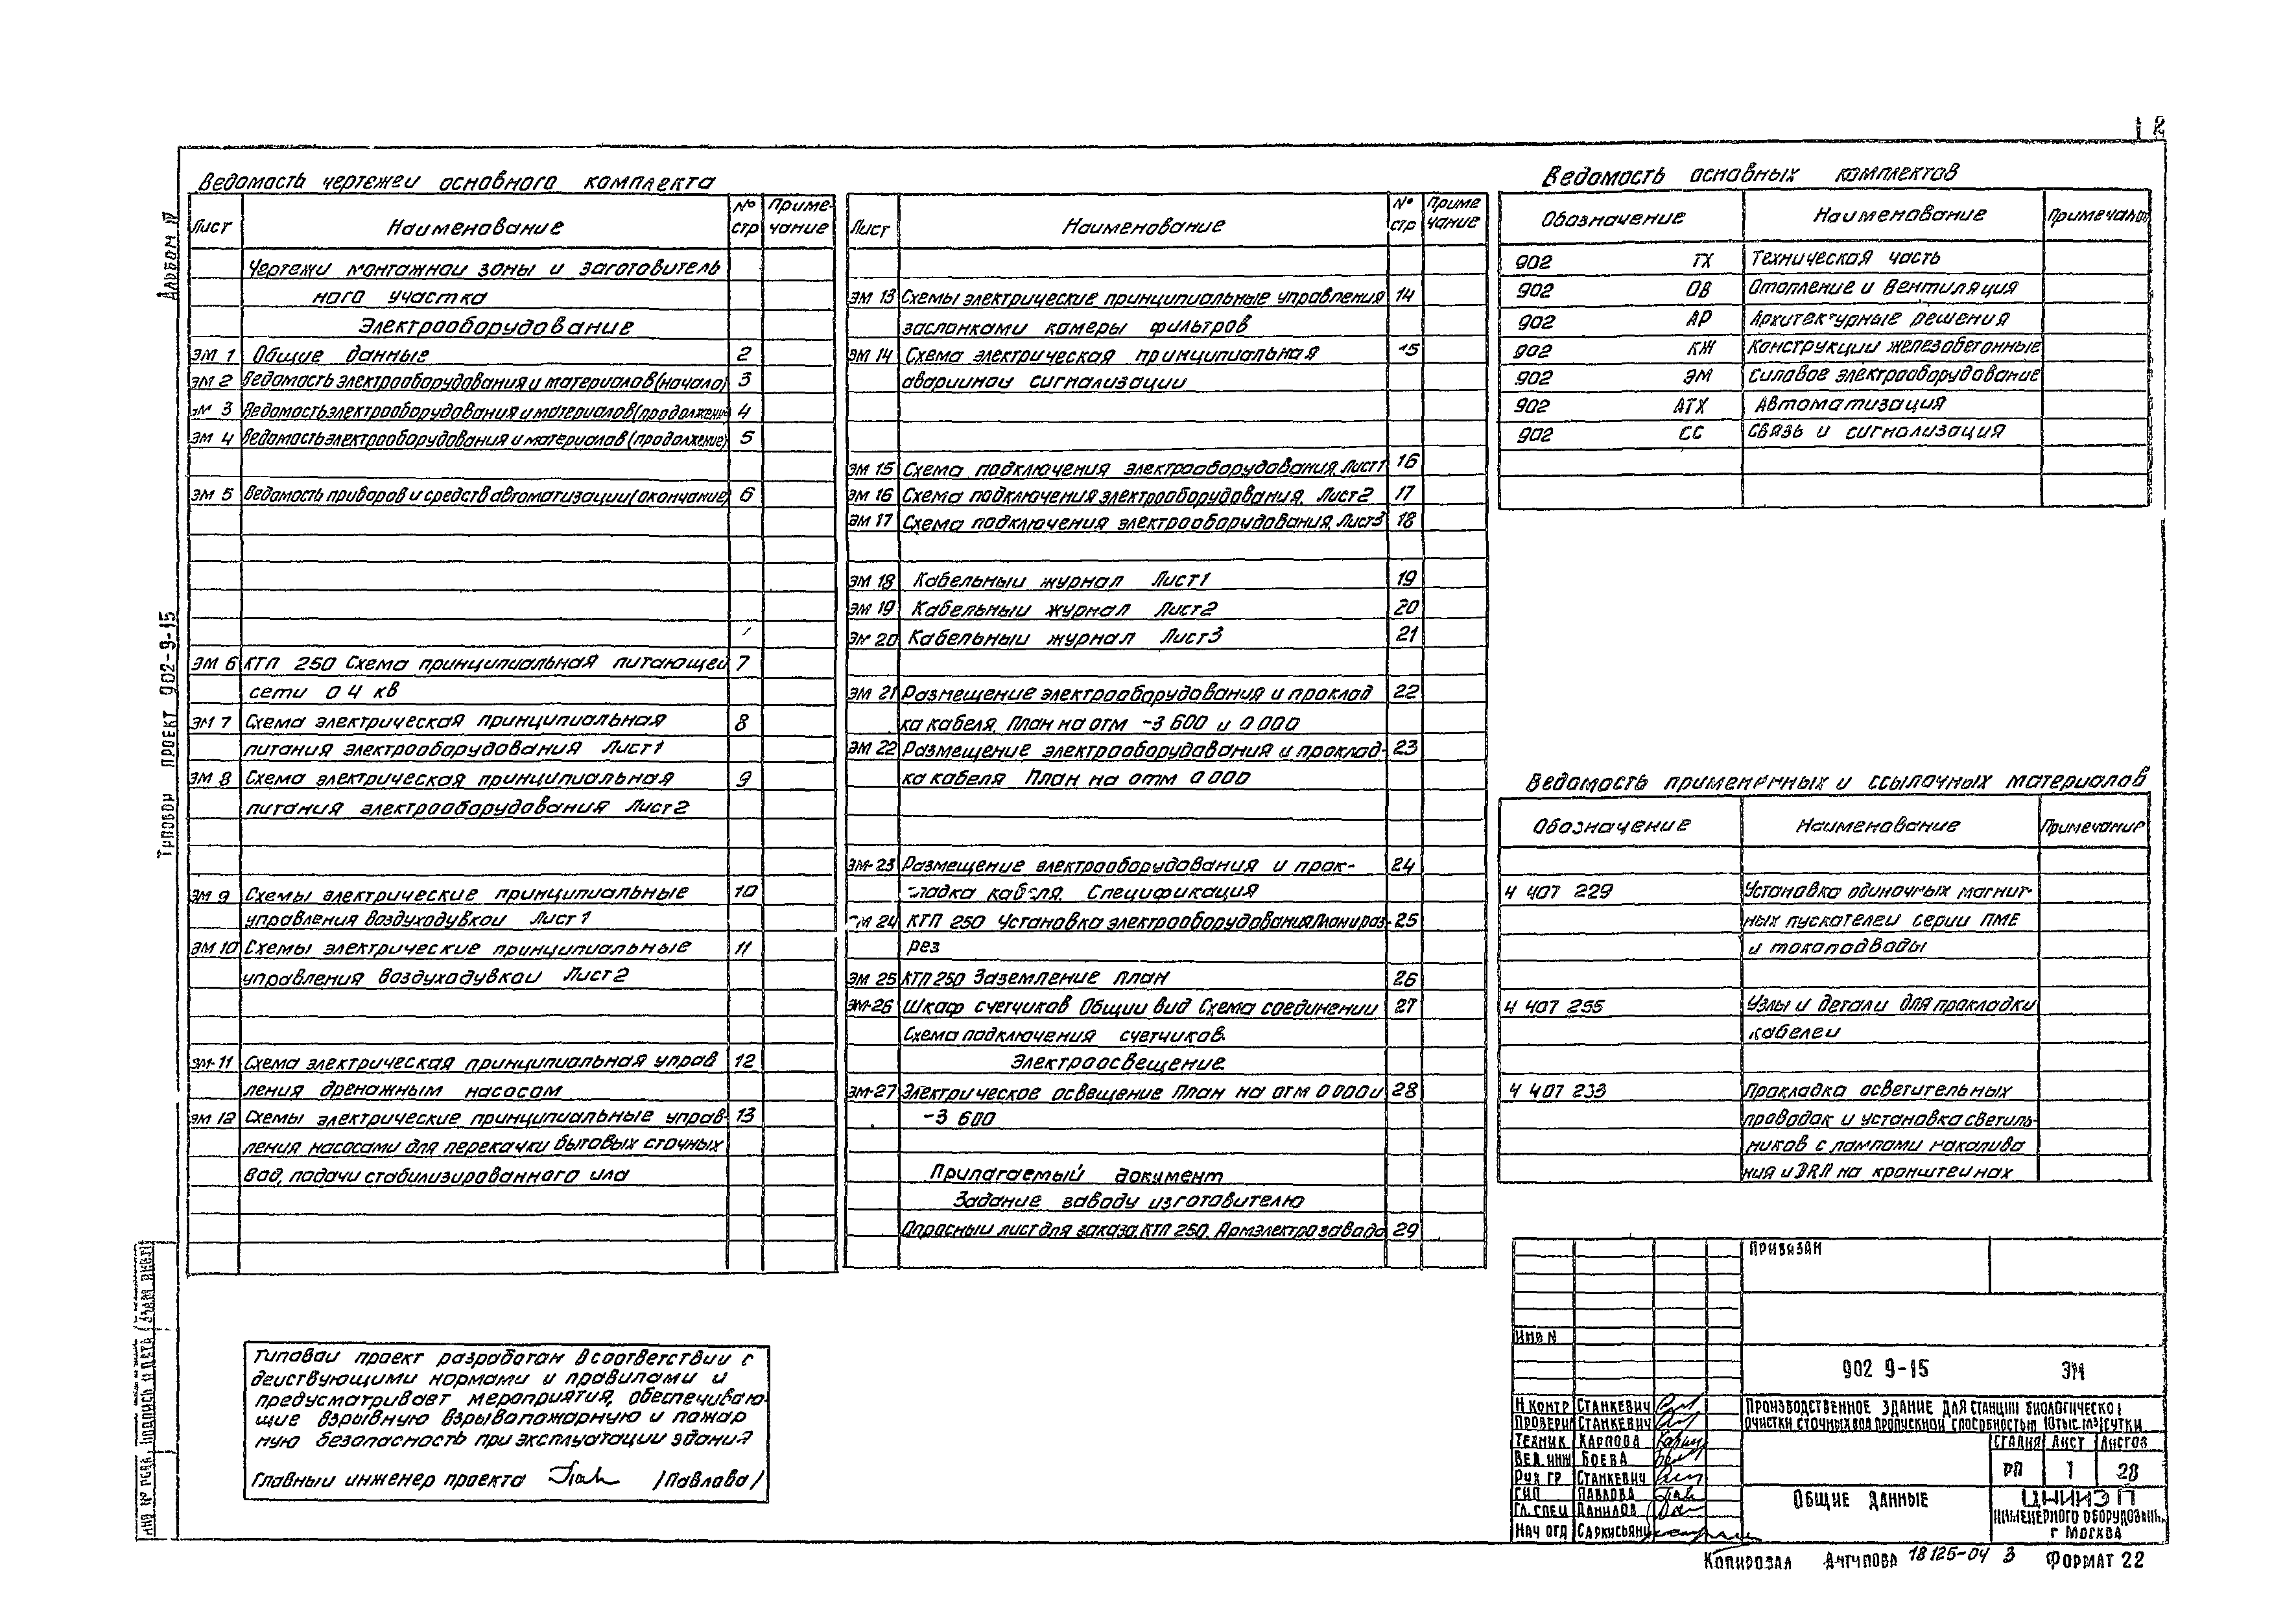 12
Альбом IV
Типовои проект 902-9-15
Ведомасть чертежеи основного комплекта
Лист Наименование № стр Приме- чание
Чертежи монтажнаи зоны и заготовитель
ного участка
Электрооборудование
ЭМ 1 Общие данные 2
ЭМ 2 Ведомасть электрооборудования и материалов (начало) 3
ЭМ 3 Ведомасть электрооборудования и материалов (продолжение) 4
ЭМ 4 Ведомасть электрооборудования и материалов (продолжение) 5
ЭМ 5 Ведомасть приборов и средств автоматизации (окончание) 6
ЭМ 6 КТП 250 Схема принципиальная питающей 7
сети 0 4 кв
ЭМ 7 Схема электрическая принципиальная 8
питания электрооборудования Лист 1
ЭМ 8 Схема электрическая принципиальная 9
питания электрооборудования Лист 2
ЭМ 9 Схемы электрические принципиальные 10
управления воздуходувкои Лист 1
ЭМ 10 Схемы электрические принципиальные 11
управления воздуходувкои Лист 2
ЭМ-11 Схема электрическая принципиальная управ 12
ления дренажным насосом
ЭМ 12 Схемы электрические принципиальные управ- 13
ления насосами для перекачки бытовых сточных
вод, подачи стабилизированного ила
Лист Наименование № стр Приме чание
ЭМ 13 Схемы электрические принципиальные управления 14
заслонками камеры фильтров
ЭМ 14 Схема электрическая принципиальная 15
авариинои сигнализации
ЭМ 15 Схема подключения электрооборудования. Лист 1 16
ЭМ 16 Схема подключения электрооборудования. Лист 2 17
ЭМ 17 Схема подключения электрооборудования. Лист 3 18
ЭМ 18 Кабельныи журнал Лист 1 19
ЭМ 19 Кабельныи журнал Лист 2 20
ЭМ 20 Кабельныи журнал Лист 3 21
ЭМ 21 Размещение электрооборудования и проклад 22
ка кабеля. План на отм -3 600 и 0 000
ЭМ 22 Размещение электрооборудования и проклад- 23
ка кабеля План на отм 0 000
ЭМ-23 Размещение электрооборудования и прок- 24
ладка кабеля. Спецификация
ЭМ 24 КТП 250 Установка электрооборудования План и раз- 25
рез
ЭМ 25 КТП 250 Заземление план 26
ЭМ-26 Шкаф счетчиков Общии вид Схема соединении 27
Схема подключения счетчиков.
Электроосвещение
ЭМ-27 Электрическое освещение План на отм 0 000 и 28
-3 600
Прилагаемый документ
Задание заводу изготовителю
Опросныи лист для заказа. КТП 250. Армэлектрозавода 29
Ведомасть основных комплектов
Обозначение Наименование Примечание
902 ТХ Техническая часть
902 ОВ Отопление и вентиляция
902 АР Архитектурные решения
902 КЖ Конструкции железобетонные
902 ЭМ Силовое электрооборудование
902 АТХ Автоматизация
902 СС Связь и сигнализация
Ведомасть применённых и ссылочных материалов
Обозначение Наименование Примечание
4 407 229 Установка одиночных магнит-
ных пускателеи серии ПМЕ
и токоподводы
4 407 255 Узлы и детали для прокладки
кабелеи
4 407 233 Прокладка осветительных
проводок и установка светиль-
ников с лампами накалива
ния и ДРЛ на кронштеинах
Типовои проект разработан в соответствии с
деиствующими нормами и правилами и
предусматривает мероприятия, обеспечиваю-
щие взрывную взрывопожарную и пожар
ную безопасность при эксплуатации здания
Главныи инженер проекта /Павлова/
Привязан
Инв N
902 9-15 ЭМ
Н контр Станкевич
Проверил Станкевич
Техник Карпова
Вед. инж Боева
Рук гр Станкевич
ГИП Павлова
Гл. спец Данилов
Нач отд Саркисьянц
Производственное здание для станции биологическои
очистки сточных вод пропускнои способностью 10тыс.м3/сутки
Стадия Лист Листов
РП 1 28
Общие данные
ЦНИИЭП
инженерного оборудован.
г Москва
Инв № подл. Подпись и дата Взам инв N
Копировал Антипова 18125-04 3 Формат 22